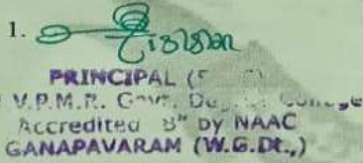 1.
PRINCIPAL
V.P.M.R. Govt. Degree College
Accredited "B" by NAAC
GANAPAVARAM (W.G.Dt.,)